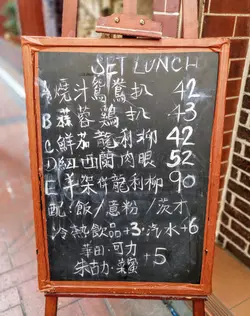 SET LUNCH
A 燒汁鴛鴦扒 42
B 蒜蓉鷄扒 43
C 鮮茄龍利柳 42
D 紐西蘭肉眼 52
E 羊架併龍利柳 90
配：飯/意粉/茨才
冷熱飲品+3·汽水+6
華田·可力
朱古力·菜蜜 +5